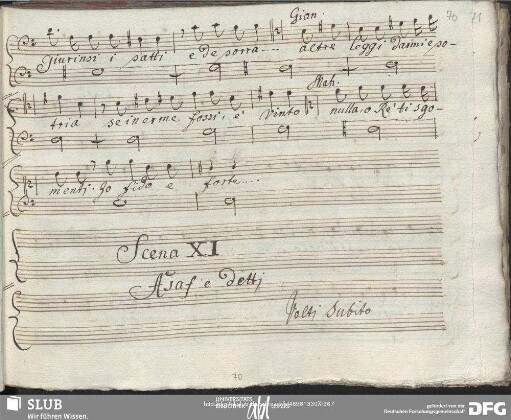 Gian. 70 71
Giurinsi i patti e deporra.... altre leggi darmi e po-
Mah.
tria se inerme fossi, e vinto nulla o Re ti sgo-
menti. Ho fido e forte....
Scena XI
Asaf e detti
Volti Subito
70
SLUB
Wir führen Wissen.
gefördert von der
Deutschen Forschungsgemeinschaft
DFG